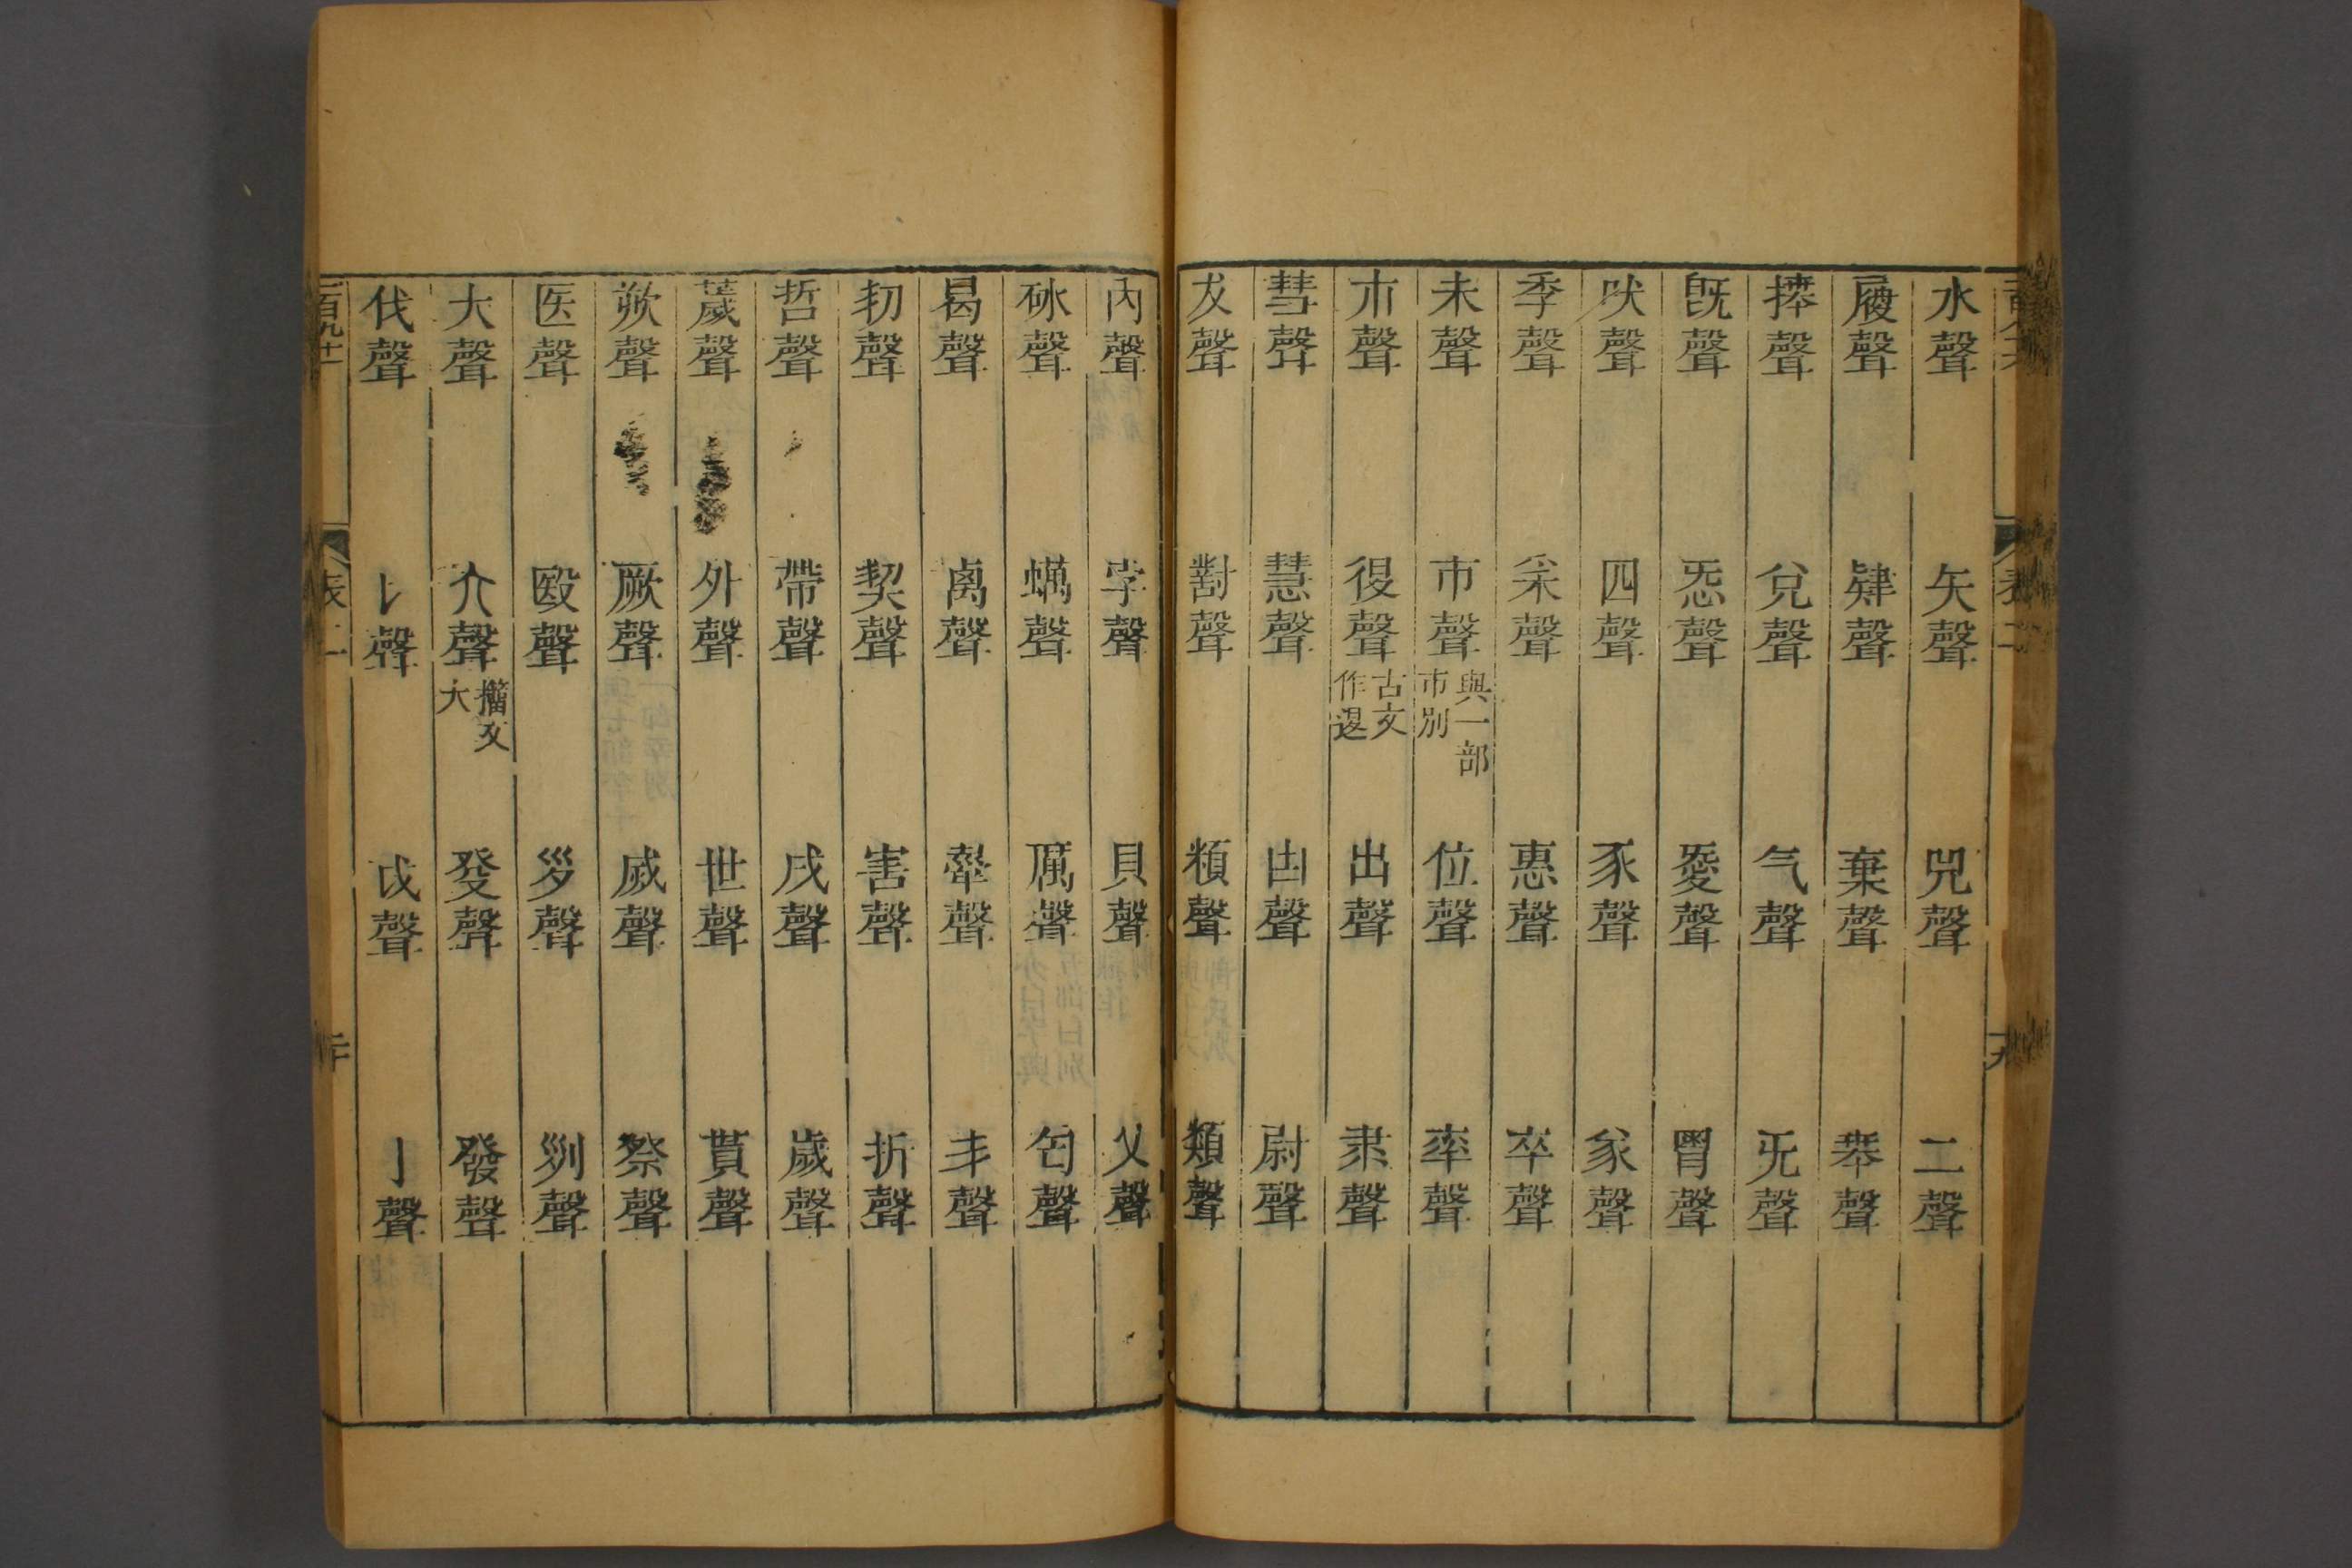 水聲 矢聲 兕聲 二聲
履聲 肄聲 棄聲 聲
捧聲 兊聲 气聲 旡聲
旣聲 㤅聲 愛聲 胃聲
吠聲 四聲 豕聲 㒸聲
季聲 采聲 惠聲 卒聲
未聲 巿聲 與一部市別 位聲 率聲
朮聲 復聲 古文作退 出聲 祟聲
彗聲 慧聲 凷聲 尉聲
犮聲 對聲 頪聲 類聲
內聲 孛聲 貝聲 乂聲
砅聲 蠇聲 厲聲 匃聲
曷聲 离聲 聲 丯聲
㓞聲 契聲 害聲 折聲
哲聲 帶聲 戌聲 歲聲
薉聲 外聲 世聲 貰聲
欮聲 厥聲 烕聲 祭聲
医聲 殹聲 聲 聲
大聲 亣聲 籒文大 癹聲 發聲
伐聲 𠄌聲 戉聲 亅聲
表二 十九
百九十二 表二 二十